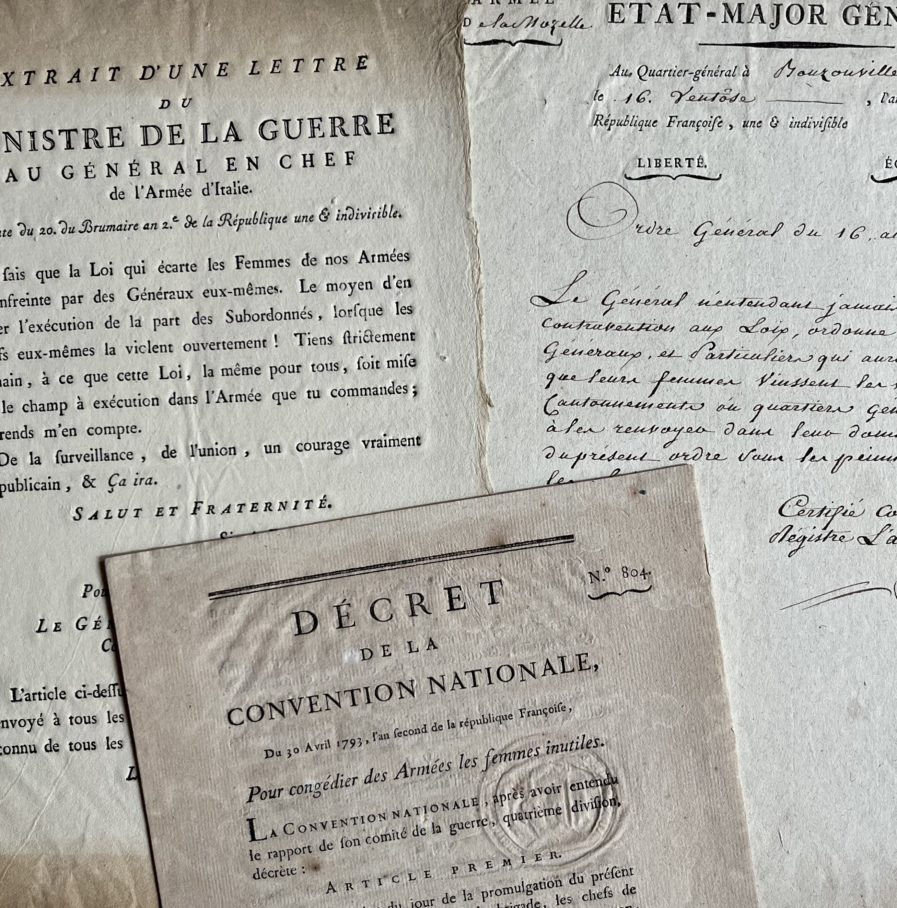 XTRAIT D'UNE LETTRE
DU
NISTRE DE LA GUERRE
AU GÉNÉRAL EN CHEF
de l'Armée d'Italie.
du 20. du Brumaire an 2.e de la République une & indivisible.
ſais que la Loi qui écarte les Femmes de nos Armées
nfreinte par des Généraux eux-mêmes. Le moyen d'en
er l'exécution de la part des Subordonnés, lorſque les
fs eux-mêmes la violent ouvertement ! Tiens ſtrictement
main, à ce que cette Loi, la même pour tous, ſoit miſe
le champ à exécution dans l'Armée que tu commandes ;
rends m'en compte.
De la ſurveillance, de l'union, un courage vraiment
publicain, & Ça ira.
SALUT ET FRATERNITÉ.
Pou
LE GÉ
L'article ci-deſſu
nvoyé à tous les
connu de tous les
ARMÉE
De la Mozelle
ETAT-MAJOR GÉN
Au Quartier-général à Bouzonville
le 16. Ventôse , l'an
République Françoiſe, une & indiviſible
LIBERTÉ.
ÉG
Ordre Général du 16 au
Le Général n'entendant jamais
contravention aux Loix, ordonne
Généraux, et Particuliers qui aur
que leurs femmes vinssent les
Cantonnements ou quartiers Gén
à les renvoyer dans leur dom
du présent ordre sous les peine
Certifié Co
Régistre L'a
N.º 804.
DÉCRET
DE LA
CONVENTION NATIONALE,
Du 30 Avril 1793, l'an ſecond de la république Françoiſe,
Pour congédier des Armées les femmes inutiles.
LA CONVENTION NATIONALE, après avoir entendu
le rapport de ſon comité de la guerre, quatrième diviſion,
décrète :
ARTICLE PREMIER.
du jour de la promulgation du préſent
brigade, les chefs de